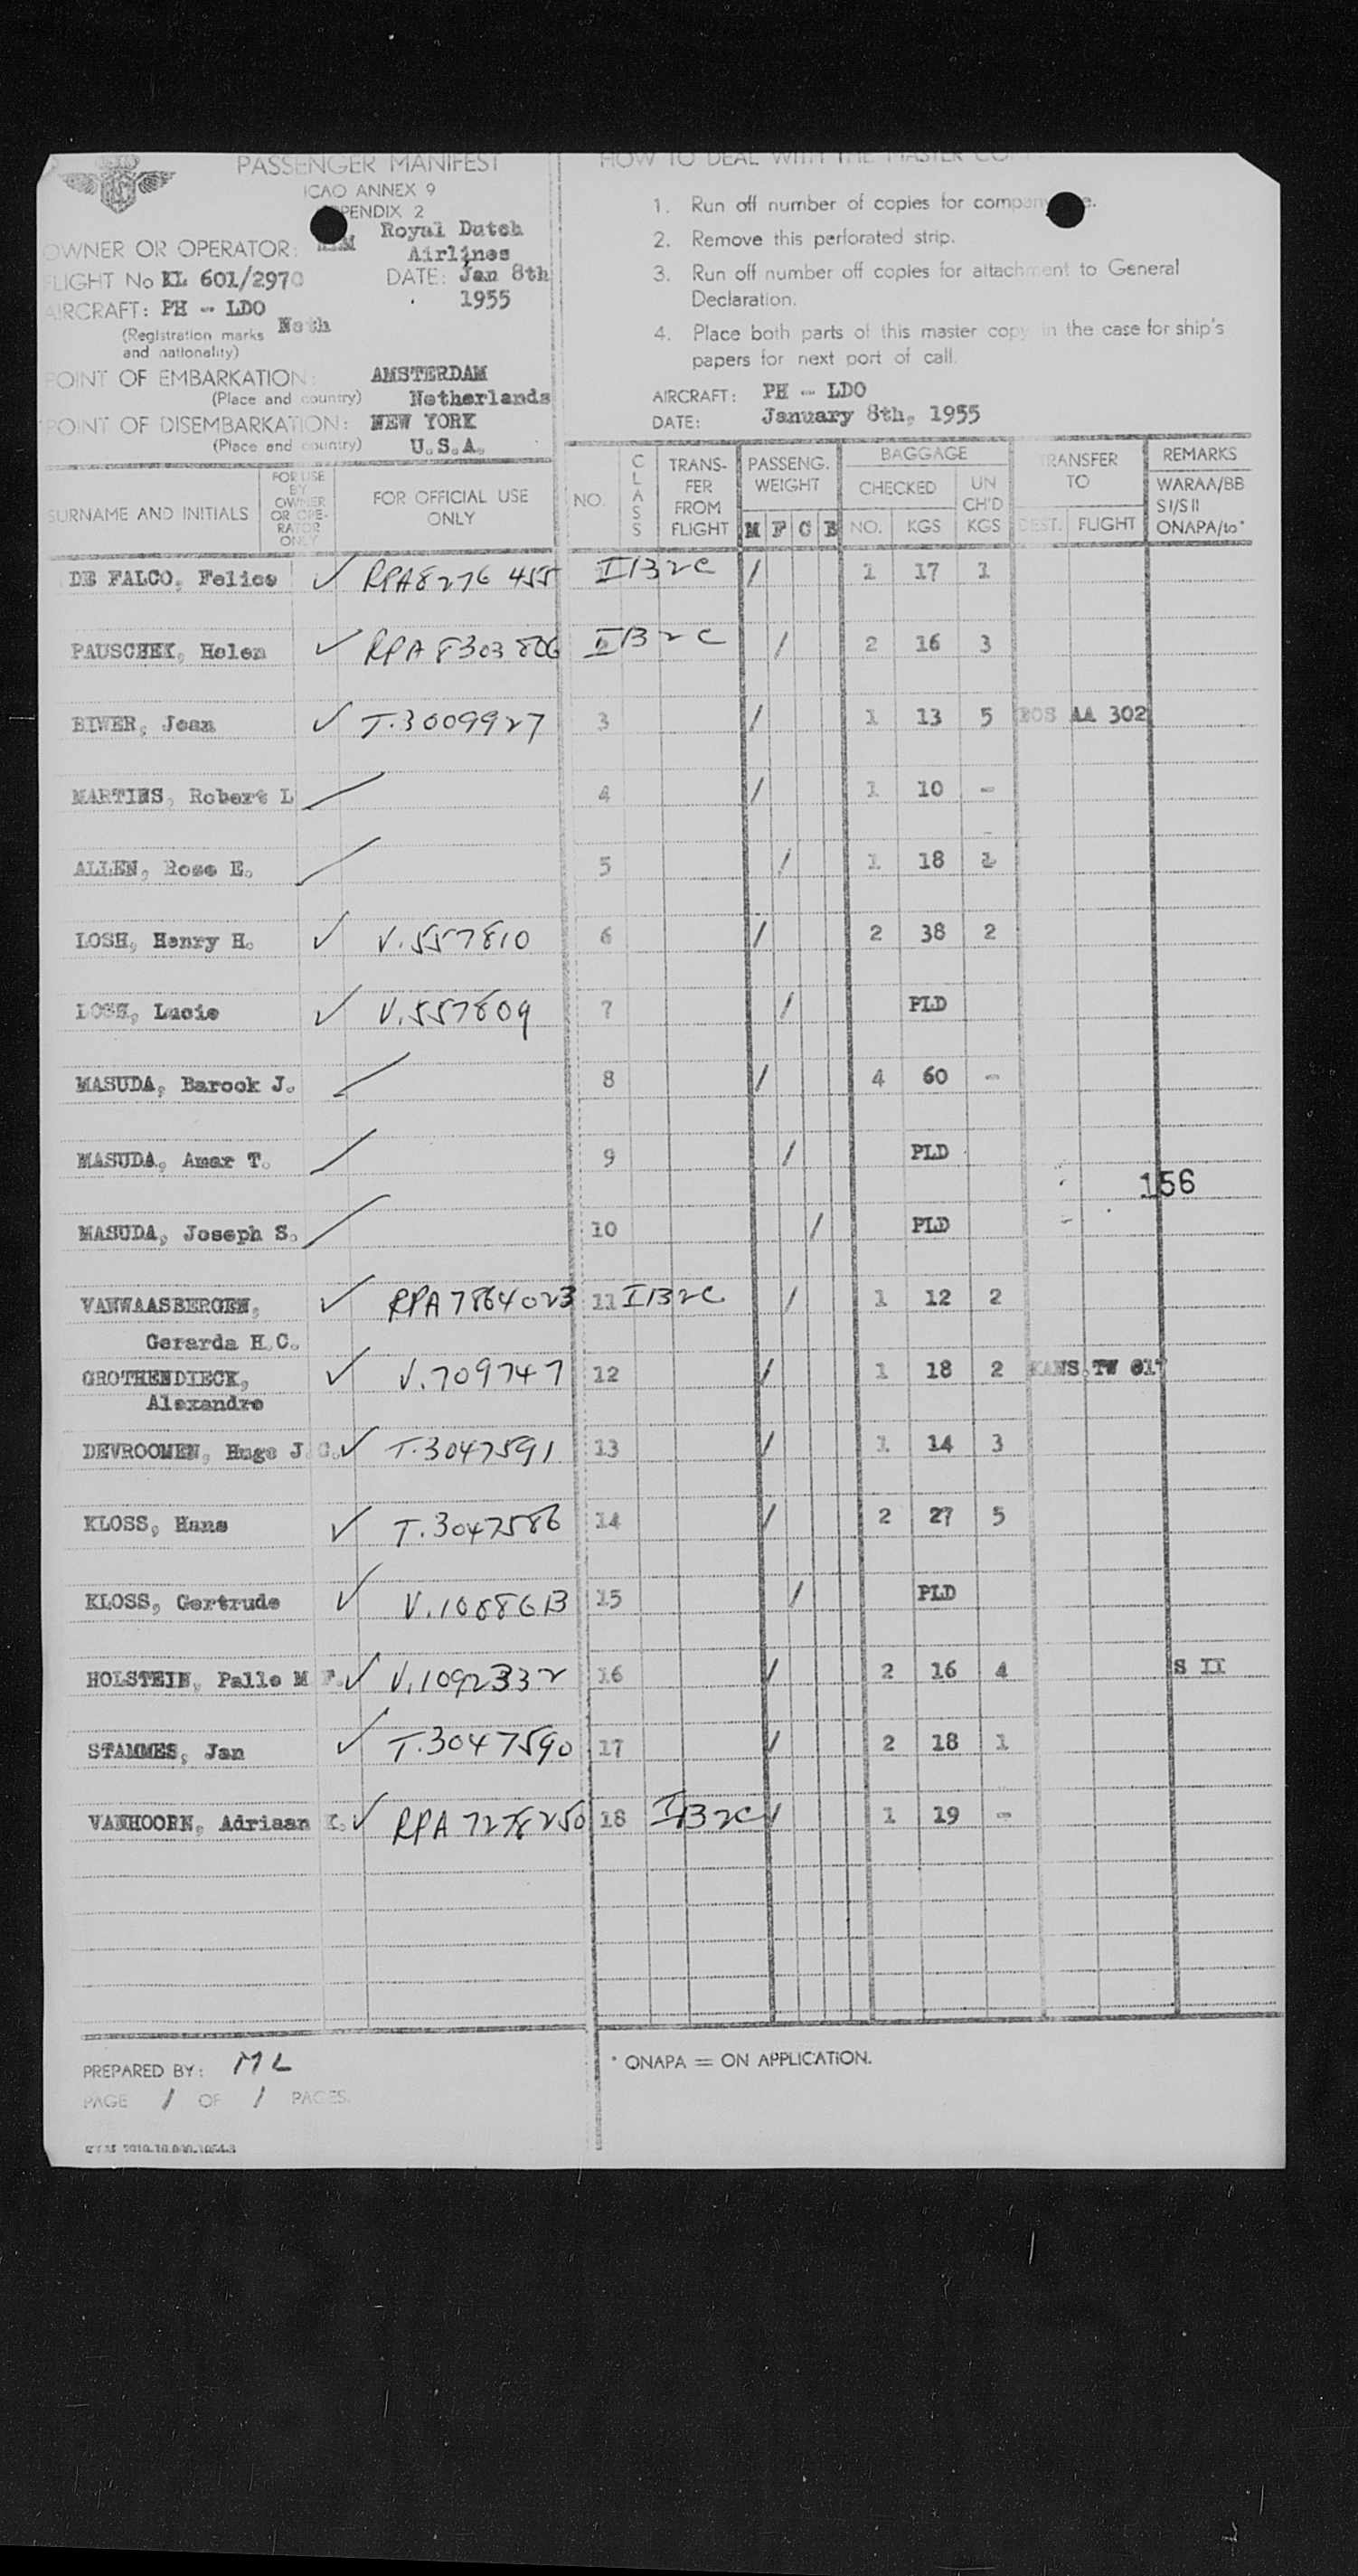 PASSENGER MANIFEST
ICAO ANNEX 9
APPENDIX 2
OWNER OR OPERATOR: KLM Royal Dutch
Airlines
FLIGHT No KL 601/2970 DATE: Jan 8th
1955
AIRCRAFT: PH - LDO
(Registration marks Neth
and nationality)
POINT OF EMBARKATION: AMSTERDAM
(Place and country) Netherlands
POINT OF DISEMBARKATION: NEW YORK
(Place and country) U.S.A.
HOW TO DEAL WITH THE MASTER
1. Run off number of copies for company
2. Remove this perforated strip.
3. Run off number off copies for attachment to General
Declaration.
4. Place both parts of this master copy in the case for ship's
papers for next port of call.
AIRCRAFT: PH - LDO
DATE: January 8th, 1955
SURNAME AND INITIALS
FOR USE
BY
OWNER
OR OPE-
RATOR
ONLY
FOR OFFICIAL USE
ONLY
NO.
CLASS
TRANS-
FER
FROM
FLIGHT
PASSENG.
WEIGHT
M F C B
BAGGAGE
CHECKED
NO. KGS
UN
CH'D
KGS
TRANSFER
TO
DEST. FLIGHT
REMARKS
WARAA/BB
SI/SII
ONAPA/to*
DE FALCO, Felice ✓ RPA8276 455 IB2C / 1 17 1
PAUSCHEK, Helen ✓ RPA 8303806 2 IB2C / 2 16 3
BIWER, Jean ✓ T.3009927 3 / 1 13 5 BOS AA 302
MARTINS, Robert L / 4 / 1 10 -
ALLEN, Rose E. / 5 / 1 18 1
LOSH, Henry H. ✓ V.557810 6 / 2 38 2
LOSH, Lucie ✓ V.557809 7 / PLD
MASUDA, Barook J. / 8 / 4 60 -
MASUDA, Amar T. / 9 / PLD
156
MASUDA, Joseph S. / 10 / PLD
VANWAASBERGEN, ✓ RPA7864023 11 IB2C / 1 12 2
Gerarda H.C.
GROTHENDIECK, ✓ V.709747 12 / 1 18 2 KANS TW 617
Alexandre
DEVROOMEN, Hugo J.C. ✓ T.3047591 13 / 1 14 3
KLOSS, Hans ✓ T.3047586 14 / 2 27 5
KLOSS, Gertrude ✓ V.1088613 15 / PLD
HOLSTEIN, Palle M F. ✓ V.1092332 16 / 2 16 4 S II
STAMMES, Jan ✓ T.3047590 17 / 2 18 1
VANHOORN, Adriaan K. ✓ RPA 7278250 18 IB2C / 1 19 -
PREPARED BY: ML
PAGE 1 OF 1 PAGES.
* ONAPA = ON APPLICATION.